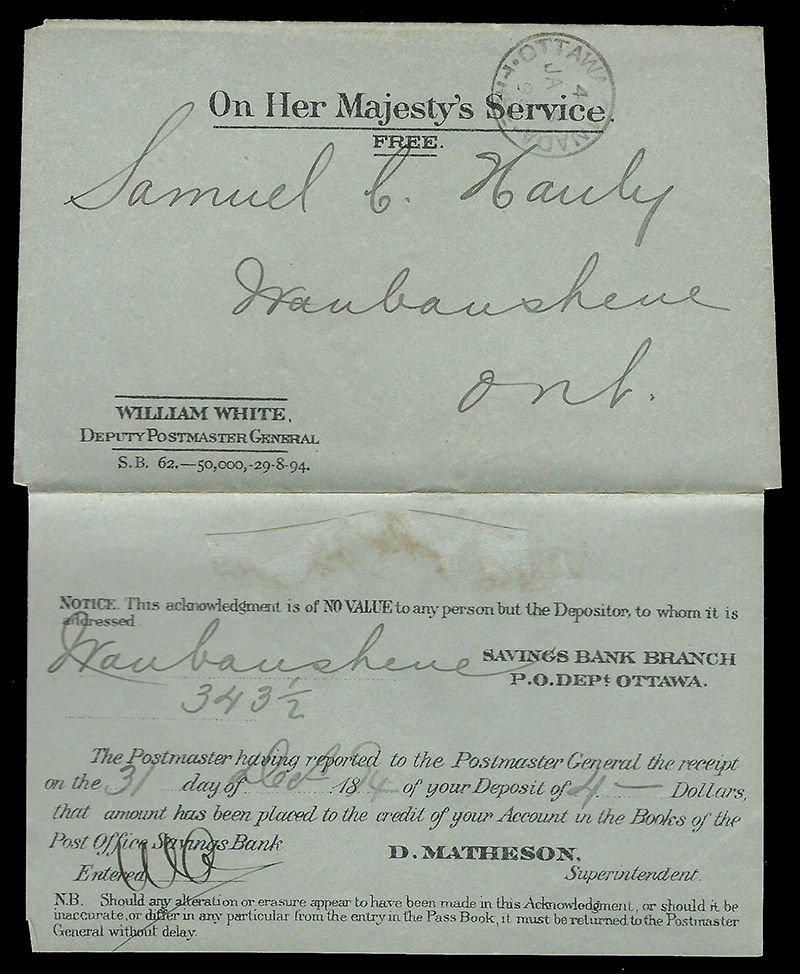 OTTAWA
JA 4
On Her Majesty's Service.
FREE.
Samuel C. Hauly
Waubaushene
Ont.
WILLIAM WHITE,
DEPUTY POSTMASTER GENERAL
S.B. 62.—50,000,-29-8-94.
NOTICE. This acknowledgment is of NO VALUE to any person but the Depositor, to whom it is
addressed
Waubaushene
SAVINGS BANK BRANCH
343½
P.O. DEPt OTTAWA.
The Postmaster having reported to the Postmaster General the receipt
on the 31 day of Dec 1894 of your Deposit of 4 — Dollars,
that amount has been placed to the credit of your Account in the Books of the
Post Office Savings Bank
D. MATHESON,
Entered
Superintendent.
N.B. Should any alteration or erasure appear to have been made in this Acknowledgment, or should it be
inaccurate, or differ in any particular from the entry in the Pass Book, it must be returned to the Postmaster
General without delay.